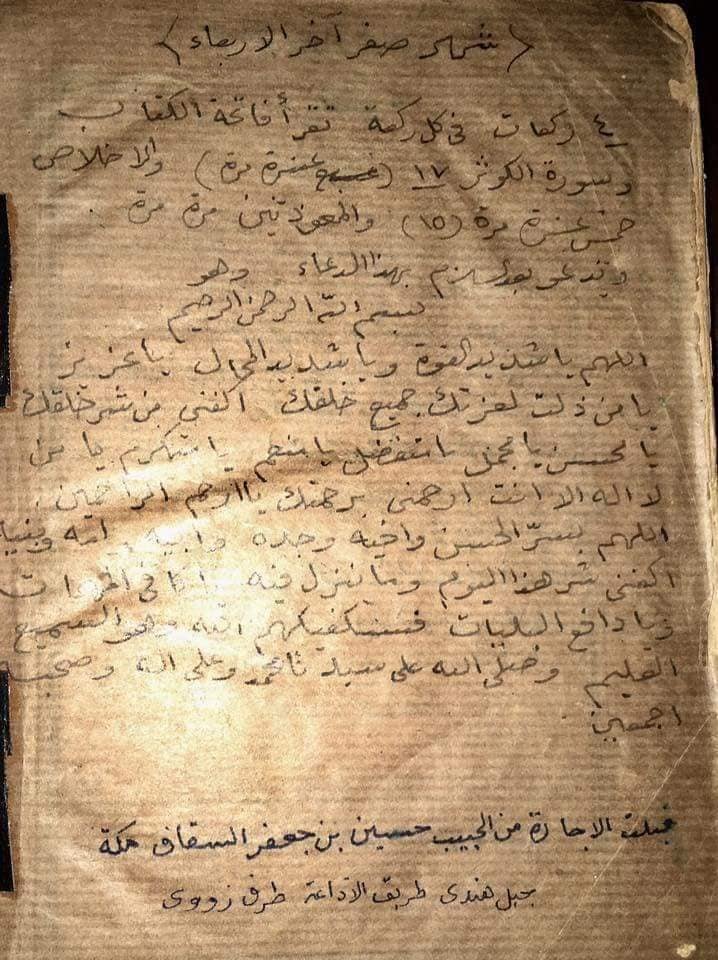 ﴿ شهر صفر آخر الاربعاء ﴾
٤ ركعات فى كل ركعة تقرأ فاتحة الكتاب
وسورة الكوثر ١٧ (سبع عشرة مرة) والاخلاص
خمس عشرة مرة (١٥) والمعوذتين مرة مرة
وتدعو بعد السلام بهذا الدعاء وهو
بسم الله الرحمن الرحيم
اللهم يا شديد القوة ويا شديد المحال يا عزيز
يا من ذلت لعزتك جميع خلقك اكفنى من شر خلقك
يا محسن يا مجمل يا متفضل يا منعم يا متكرم يا من
لا اله الا انت ارحمنى برحمتك يا ارحم الراحمين
اللهم بسرّ الحسن واخيه وجده وابيه امه وبنيه
اكفنى شر هذا اليوم وما ينزل فيه يا كافى المهمات
ويا دافع البليات فسيكفيكهم الله وهو السميع
العليم وصلى الله على سيدنا محمد وعلى اله وصحبه
اجمعين
قبلت الاجازة من الحبيب حسين بن جعفر السقاف مكة
جبل هندى طريق الاذاعة طرف